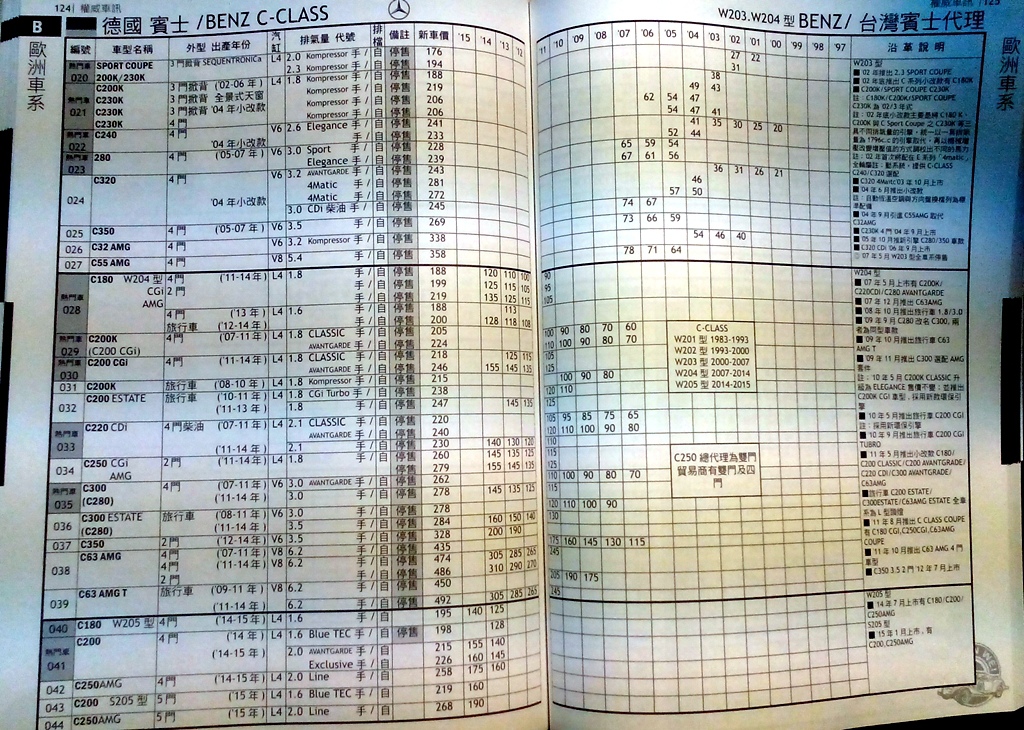 124 權威車訊
B
德國 賓士 /BENZ C-CLASS
歐洲車系
編號 車型名稱 外型 出產年份 汽缸 排氣量 代號 排檔 備註 新車價 '15 '14 '13 '12
熱門車 020 SPORT COUPE 200K/230K 3 門掀背 SEQUENTRONICa L4 2.0 Kompressor 手 / 自 停售 176
2.3 Kompressor 手 / 自 停售 194
熱門車 021 C200K 3 門掀背 ('02-06 年) L4 1.8 Kompressor 手 / 自 停售 188
C230K 3 門掀背 全景式天窗 Kompressor 手 / 自 停售 219
C230K 3 門掀背 '04 年小改款 Kompressor 手 / 自 停售 206
C230K 4 門 Kompressor 手 / 自 停售 206
熱門車 022 C240 4 門 V6 2.6 Elegance 手 / 自 停售 241
'04 年小改款 手 / 自 停售 233
熱門車 023 280 4 門 ('05-07 年) V6 3.0 Sport 手 / 自 停售 228
Elegance 手 / 自 停售 239
024 C320 4 門 V6 3.2 AVANTGARDE 手 / 自 停售 243
4Matic 手 / 自 停售 281
'04 年小改款 4Matic 手 / 自 停售 272
3.0 CDi 柴油 手 / 自 停售 245
025 C350 4 門 ('05-07 年) V6 3.5 手 / 自 停售 269
026 C32 AMG 4 門 V6 3.2 Kompressor 手 / 自 停售 338
027 C55 AMG 4 門 V8 5.4 手 / 自 停售 358
熱門車 028 C180 W204 型 4 門 ('11-14 年) L4 1.8 手 / 自 停售 188 120 110 100
CGi 2 門 手 / 自 停售 199 125 115 105
AMG 手 / 自 停售 219 135 125 115
4 門 ('13 年) L4 1.6 手 / 自 停售 188 113
旅行車 ('12-14 年) 手 / 自 停售 200 128 118 108
熱門車 029 C200K (C200 CGi) 4 門 ('07-11 年) L4 1.8 CLASSIC 手 / 自 停售 205
AVANTGARDE 手 / 自 停售 224
熱門車 030 C200 CGi 4 門 ('11-14 年) L4 1.8 CLASSIC 手 / 自 停售 218 125 115
AVANTGARDE 手 / 自 停售 246 155 145 135
031 C200K 旅行車 ('08-10 年) L4 1.8 Kompressor 手 / 自 停售 215
032 C200 ESTATE 旅行車 ('10-11 年) L4 1.8 CGi Turbo 手 / 自 停售 238
('11-13 年) 1.8 手 / 自 停售 247 145 135
熱門車 033 C220 CDi 4 門柴油 ('07-11 年) L4 2.1 CLASSIC 手 / 自 停售 220
AVANTGARDE 手 / 自 停售 240
('11-14 年) 2.1 手 / 自 停售 230 140 130 120
034 C250 CGi 2 門 ('11-14 年) L4 1.8 手 / 自 停售 260 145 135 125
AMG 手 / 自 停售 279 155 145 135
熱門車 035 C300 (C280) 4 門 ('07-11 年) V6 3.0 AVANTGARDE 手 / 自 停售 262
('11-14 年) 3.0 手 / 自 停售 278 145 135 125
036 C300 ESTATE (C280) 旅行車 ('08-11 年) V6 3.0 手 / 自 停售 278
('11-14 年) 3.5 手 / 自 停售 284 160 150 140
037 C350 2 門 ('12-14 年) V6 3.5 手 / 自 停售 328 200 190
038 C63 AMG 4 門 ('07-11 年) V8 6.2 手 / 自 停售 435
4 門 ('11-14 年) V8 6.2 手 / 自 停售 474 305 285 265
2 門 手 / 自 停售 486 310 290 270
039 C63 AMG T 旅行車 ('09-11 年) V8 6.2 手 / 自 停售 450
('11-14 年) 6.2 手 / 自 停售 492 305 285 265
040 C180 W205 型 4 門 ('14-15 年) L4 1.6 手 / 自 195 140 125
熱門車 041 C200 4 門 ('14 年) L4 1.6 Blue TEC 手 / 自 停售 198 128
('14-15 年) 2.0 AVANTGARDE 手 / 自 215 155 140
Exclusive 手 / 自 226 160 145
042 C250AMG 4 門 ('14-15 年) L4 2.0 Line 手 / 自 258 175 160
043 C200 S205 型 5 門 ('15 年) L4 1.6 Blue TEC 手 / 自 219 160
044 C250AMG 5 門 ('15 年) L4 2.0 Line 手 / 自 268 190
權威車訊 125
W203.W204 型 BENZ/ 台灣賓士代理
歐洲車系
'11 '10 '09 '08 '07 '06 '05 '04 '03 '02 '01 '00 '99 '98 '97 沿革說明
27 22
31
38
49 43
62 54 47
54 47 41
41 35 30 25 20
52 44
65 59 54
67 61 56
36 31 26 21
46
57 50
74 67
73 66 59
54 46 40
78 71 64
90
95
105
100 90 80 70 60
110 100 90 80 70
105
125
100 90 80
120 110
125
105 95 85 75 65
120 110 100 90 80
110
115
125
110 100 90 80 70
125
120 110 100 90
130
175 160 145 130 115
245
205 190 175
245
C-CLASS
W201 型 1983-1993
W202 型 1993-2000
W203 型 2000-2007
W204 型 2007-2014
W205 型 2014-2015
C250 總代理為雙門
貿易商有雙門及四
門
W203 型
■ '02 年推出 2.3 SPORT COUPE
■ '02 年底推出 C 系列小改款有 C180K
■ C200K/SPORT COUPE C230K
註：C180K/C200K/SPORT COUPE
C230K 為 '02/3 年式
C240/C320 選配
■ C320 4Matic'03 年 10 月上市
■ '04 年 6 月推出小改款
註：自動恆溫空調與方向盤換檔列為標
準配備
■ '04 年 9 月引進 C55AMG 取代
C32AMG
■ C230K 4 門 '04 年 9 月上市
■ '05 年 10 月推新引擎 C280/350 車款
■ C320 CDi '06 年 9 月上市
◎ '07 年 5 月 W203 型全車系停售
W204 型
■ '07 年 5 月上市有 C200K/
C220CDI/C280 AVANTGARDE
■ '07 年 12 月推出 C63AMG
■ '08 年 10 月推出旅行車 1.8/3.0
■ '09 年 9 月 C280 改名 C300, 兩
者為同型車款
■ '09 年 10 月推出旅行車 C63
AMG T
■ '09 年 11 月推出 C300 選配 AMG
套件
註：'10 年 5 月 C200K CLASSIC 升
級為 ELEGANCE 售價不變；並推出
C200K CGI 車型, 採用新款環保引
擎
■ '10 年 5 月推出旅行車 C200 CGI
註：採用新環保引擎
■ '10 年 9 月推出旅行車 C200 CGI
TUBRO
■ '11 年 5 月推出小改款 C180/
C200 CLASSIC/C200 AVANTGRADE/
C220 CDI/C300 AVANTGRADE/
C63AMG
■旅行車 C200 ESTATE/
C300ESTATE/C63AMG ESTATE 全車
系為 L 型頭燈
■ '11 年 8 月推出 C CLASS COUPE
有 C180 CGI,C250CGI,C63AMG
COUPE
■ '11 年 10 月推出 C63 AMG 4 門
車型
■ C350 3.5 2 門 '12 年 7 月上市
W205 型
■ '14 年 7 月上市有 C180/C200/
C250AMG
S205 型
■ '15 年 1 月上市, 有
C200,C250AMG